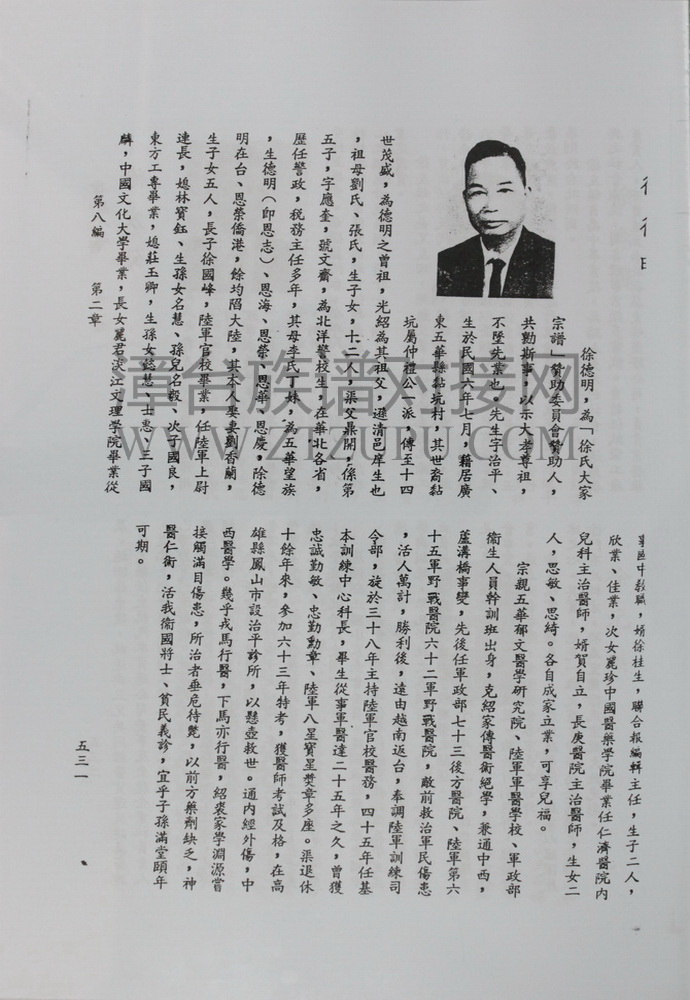 徐德明
徐德明,為「徐氏大家
宗譜」贊助委員會贊助人,
共勷斯事,以示大孝尊祖,
不墜先業也。先生字治平、
生於民國六年七月,籍居廣
東五華縣黏坑村,其世裔黏
坑屬仲禮公一派,傳至十四
世茂盛,為德明之曾祖,光紹為其祖父,遜清邑庠生也
,祖母劉氏、張氏,生子女,十二人,渠父鼎開,係第
五子,字應奎,號文齋,為北洋警校生,在華北各省,
歷任警政,稅務主任多年,其母李氏丁妹,為五華望族
,生德明(即恩志)、恩海、恩榮、恩華、恩慶,除德
明在台、恩榮僑港,餘均陷大陸,其本人娶妻劉香蘭,
生子女五人,長子徐國峰,陸軍官校畢業,任陸軍上尉
連長,媳林寶鈺、生孫女名慧、孫兒名毅、次子國良,
東方工專畢業,媳莊玉卿,生孫女懿慧、士惠、三子國
麟,中國文化大學畢業,長女麗君淡江文理學院畢業從
第八編 第二章
事國中教職,婿徐桂生,聯合報編輯主任,生子二人,
欣業、佳業,次女麗珍中國醫藥學院畢業任仁濟醫院內
兒科主治醫師,婿賀自立,長庚醫院主治醫師,生女二
人,思敏、思綺。各自成家立業,可享兒福。
宗親五華郁文醫學研究院、陸軍軍醫學校、軍政部
衛生人員幹訓班出身,克紹家傳醫術絕學,兼通中西,
蘆溝橋事變,先後任軍政部七十三後方醫院、陸軍第六
十五軍野戰醫院六十二軍野戰醫院,敵前救治軍民傷患
,活人萬計,勝利後,遠由越南返台,奉調陸軍訓練司
令部,旋於三十八年主持陸軍官校醫務,四十五年任基
本訓練中心科長,畢生從事軍醫達二十五年之久,曾獲
忠誠勤敏、忠勤勳章、陸軍八星寶星獎章多座。渠退休
十餘年來,參加六十三年特考,獲醫師考試及格,在高
雄縣鳳山市設治平診所,以懸壺救世。通內經外傷,中
西醫學。幾乎戎馬行醫,下馬亦行醫,紹裘家學淵源嘗
接觸滿目傷患,所治者垂危待斃,以前方藥劑缺乏,神
醫仁術,活我衛國將士、貧民義診,宜乎子孫滿堂頤年
可期。
五三一
漳台族谱对接网
WWW.ZTZUPU.COM